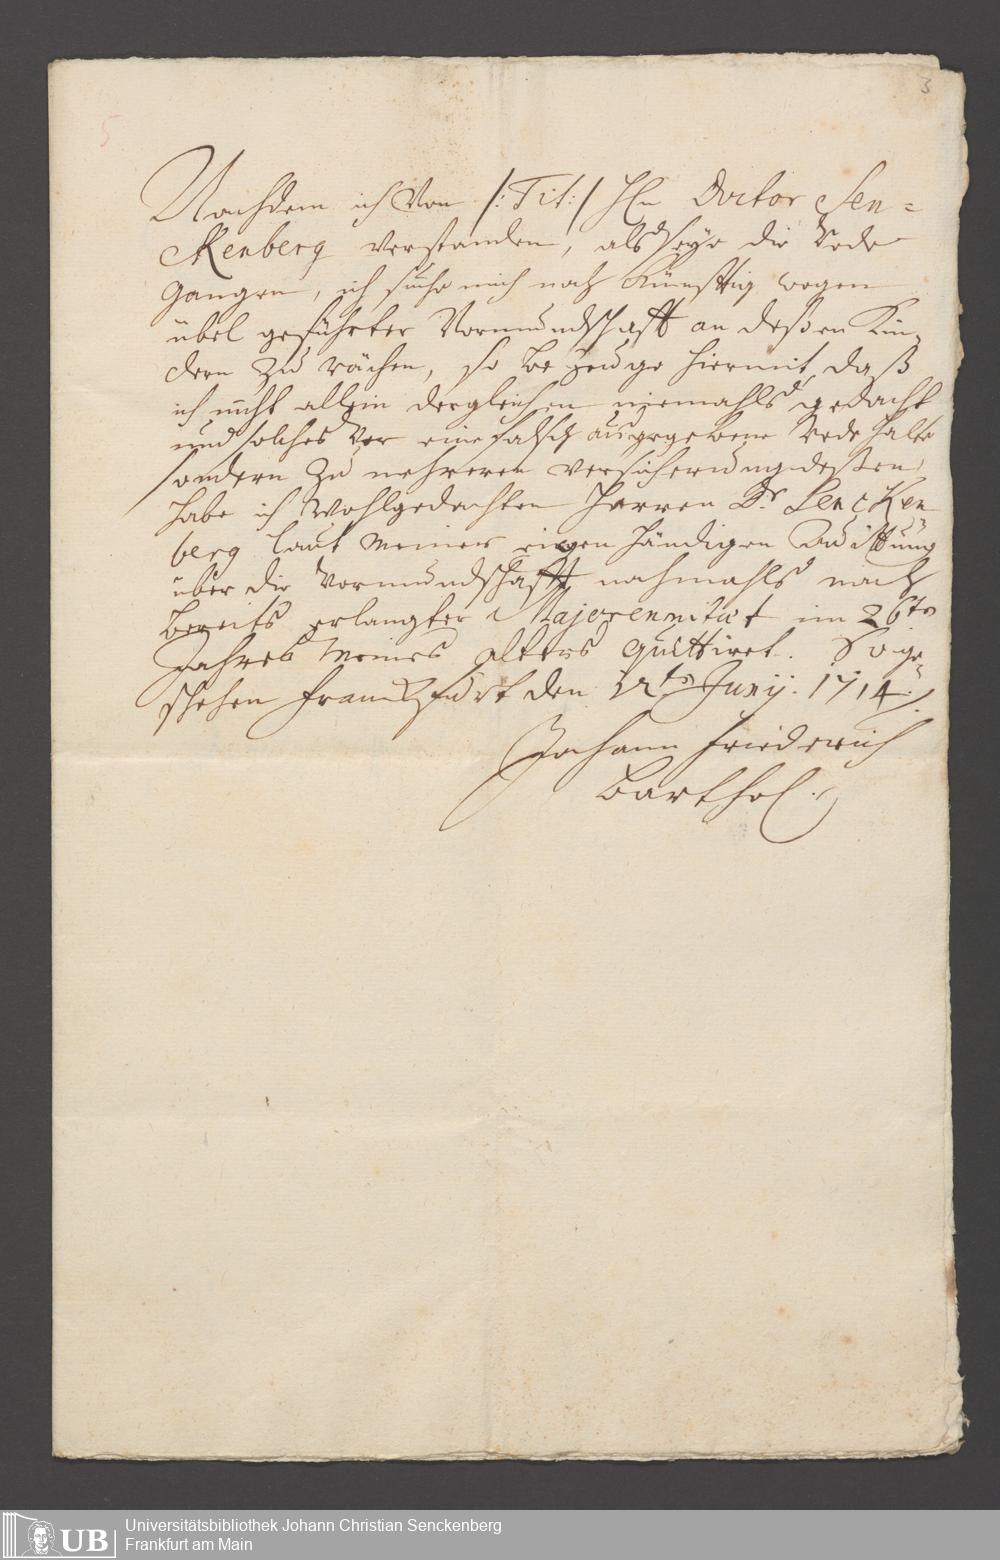 3
5
Nachdem ich Von /: Tit: / Hn Doctor Sen=
ckenberg verstanden, als seye die Rede
gangen, ich suche mich noch Künfftig wegen
übel geführter Vormundschafft an deßen Kin-
dern zu rächen, so bezeuge hiermit daß
ich nicht allein dergleichen niemahls gedacht
und solches Vor eine falsch ausgegebene Rede halte
sondern zu mehreren versicherung deßen
habe ich Wohlgedachten Herren Dr. Sencken
berg laut Meiner eigen händigen Quittung
über die Vormundschafft nachmahls nach
bereits erlangter Majorennitat im 26ten
Jahres Meines alters quittiret. So ge-
schehen Franckfurt den Juny. 1714.
Johann Friederich
Barthol.
Universitätsbibliothek Johann Christian Senckenberg
Frankfurt am Main
UB